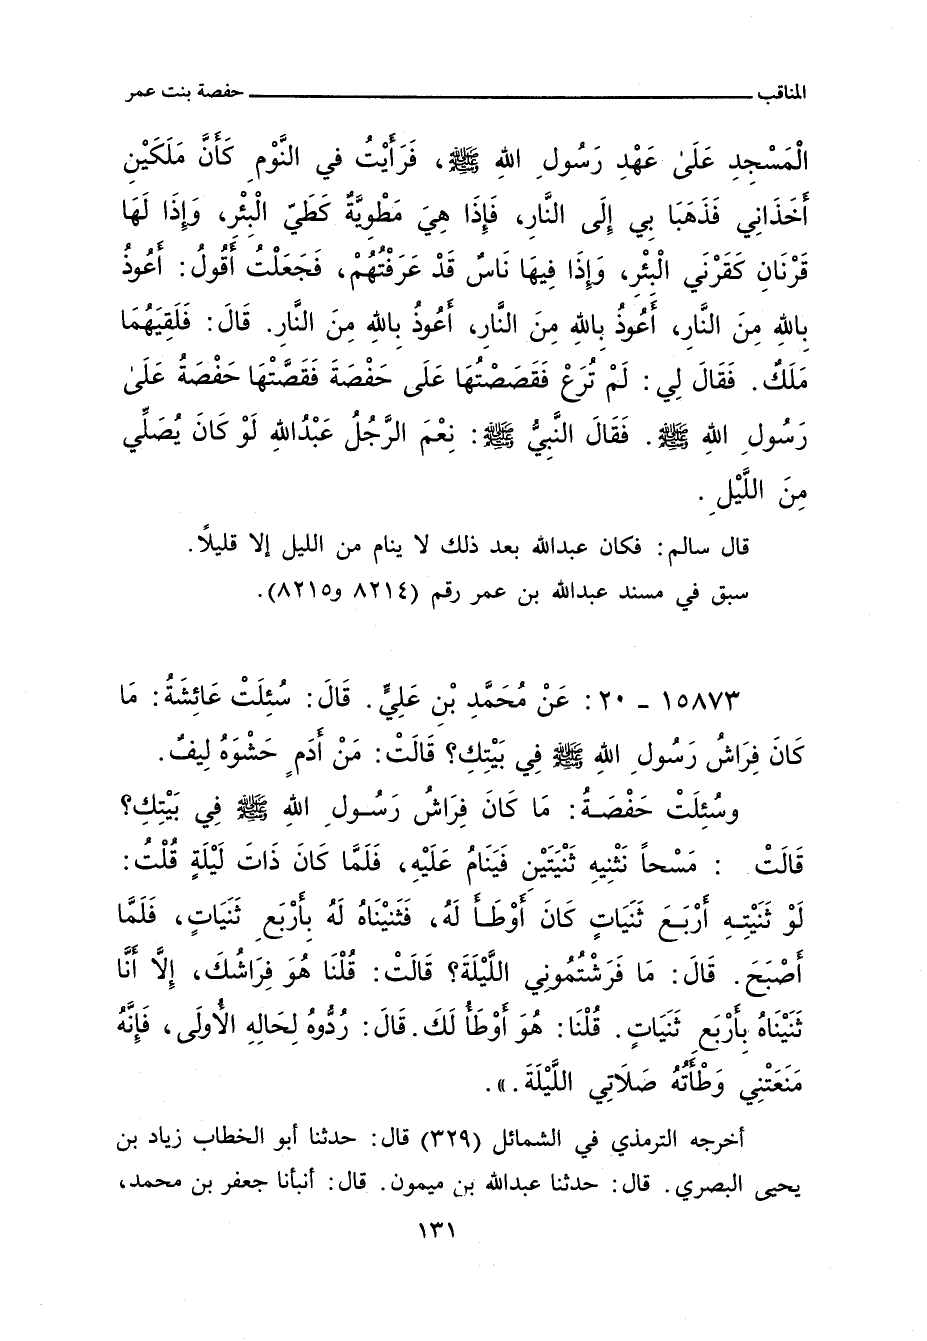 المناقب ــــــــــــــــــــ حفصة بنت عمر
الْمَسْجِدِ عَلَىٰ عَهْدِ رَسُولِ اللهِ ﷺ، فَرَأَيْتُ في النَّوْمِ كَأَنَّ مَلَكَيْنِ
أَخَذَانِي فَذَهَبَا بِي إِلَى النَّارِ، فَإِذَا هِيَ مَطْوِيَّةٌ كَطَيِّ الْبِئْرِ، وَإِذَا لَهَا
قَرْنَانِ كَقَرْنَيِ الْبِئْرِ، وَإِذَا فِيهَا نَاسٌ قَدْ عَرَفْتُهُمْ، فَجَعَلْتُ أَقُولُ: أَعُوذُ
بِاللهِ مِنَ النَّارِ، أَعُوذُ بِاللهِ مِنَ النَّارِ، أَعُوذُ بِاللهِ مِنَ النَّارِ. قَالَ: فَلَقِيَهُمَا
مَلَكٌ. فَقَالَ لِي: لَمْ تُرَعْ فَقَصَصْتُهَا عَلَى حَفْصَةَ فَقَصَّتْهَا حَفْصَةُ عَلَىٰ
رَسُولِ اللهِ ﷺ. فَقَالَ النَّبِيُّ ﷺ: نِعْمَ الرَّجُلُ عَبْدُاللهِ لَوْ كَانَ يُصَلِّي
مِنَ اللَّيْلِ.
قال سالم: فكان عبدالله بعد ذلك لا ينام من الليل إلا قليلًا.
سبق في مسند عبدالله بن عمر رقم (٨٢١٤ و٨٢١٥).
١٥٨٧٣ ـ ٢٠: عَنْ مُحَمَّدِ بْنِ عَلِيٍّ. قَالَ: سُئِلَتْ عَائِشَةُ: مَا
كَانَ فِرَاشُ رَسُولِ اللهِ ﷺ فِي بَيْتِكِ؟ قَالَتْ: مَنْ أَدَمٍ حَشْوَهُ لِيفٌ.
وسُئِلَتْ حَفْصَةُ: مَا كَانَ فِرَاشُ رَسُولِ اللهِ ﷺ فِي بَيْتِكِ؟
قَالَتْ : مَسْحاً نَثْنِيهِ ثَنْيَتَيْنِ فَيَنَامُ عَلَيْهِ، فَلَمَّا كَانَ ذَاتَ لَيْلَةٍ قُلْتُ:
لَوْ ثَنَيْتِهِ أَرْبَعَ ثَنَيَاتٍ كَانَ أَوْطَأَ لَهُ، فَثَنَيْنَاهُ لَهُ بِأَرْبَعِ ثَنَيَاتٍ، فَلَمَّا
أَصْبَحَ. قَالَ: مَا فَرَشْتُمُونِي اللَّيْلَةَ؟ قَالَتْ: قُلْنَا هُوَ فِرَاشُكَ، إِلَّا أَنَّا
ثَنَيْنَاهُ بِأَرْبَعِ ثَنَيَاتٍ. قُلْنَا: هُوَ أَوْطَأُ لَكَ. قَالَ: رُدُّوهُ لِحَالِهِ الْأُولَى، فَإِنَّهُ
مَنَعَتْنِي وَطْأَتُهُ صَلَاتِي اللَّيْلَةَ.».
أخرجه الترمذي في الشمائل (٣٢٩) قال: حدثنا أبو الخطاب زياد بن
يحيى البصري. قال: حدثنا عبدالله بن ميمون. قال: أنبأنا جعفر بن محمد،
١٣١